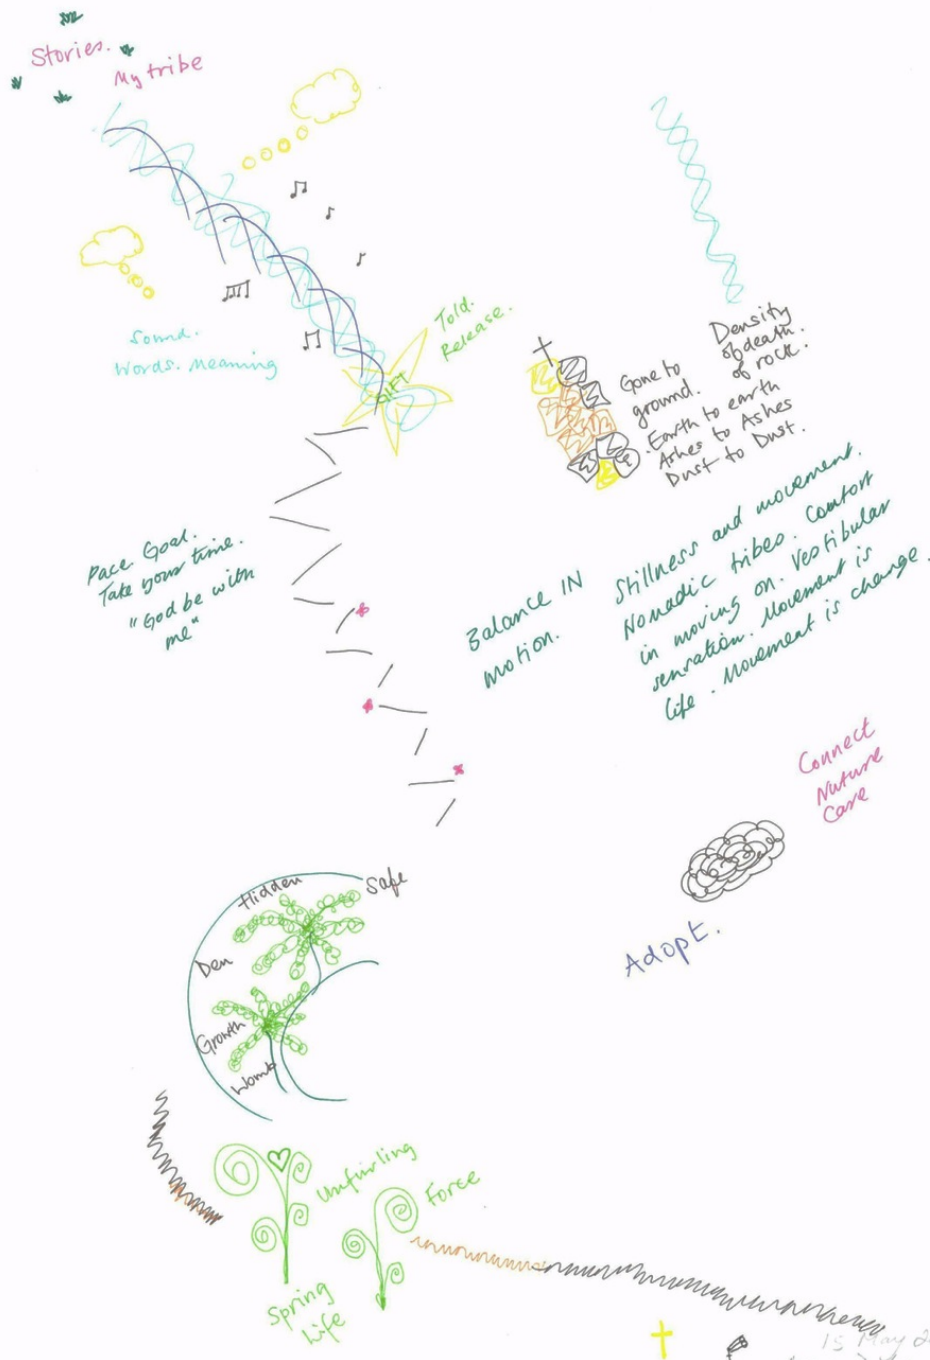 Stories.
My tribe
Sound.
Words. Meaning
Told.
Release.
GIFT
Density
of death.
of rock.
Gone to
ground.
Earth to earth
Ashes to Ashes
Dust to Dust.
Pace. Goal.
Take your time.
"God be with
me"
Balance IN
motion.
Stillness and movement.
Nomadic tribes. Comfort
in moving on. Vestibular
sensation. Movement is
life. Movement is change.
Connect
Nuture
Care
Adopt.
Hidden
Safe
Den
Growth
Womb
Unfurling
Force
Spring
Life
15 May